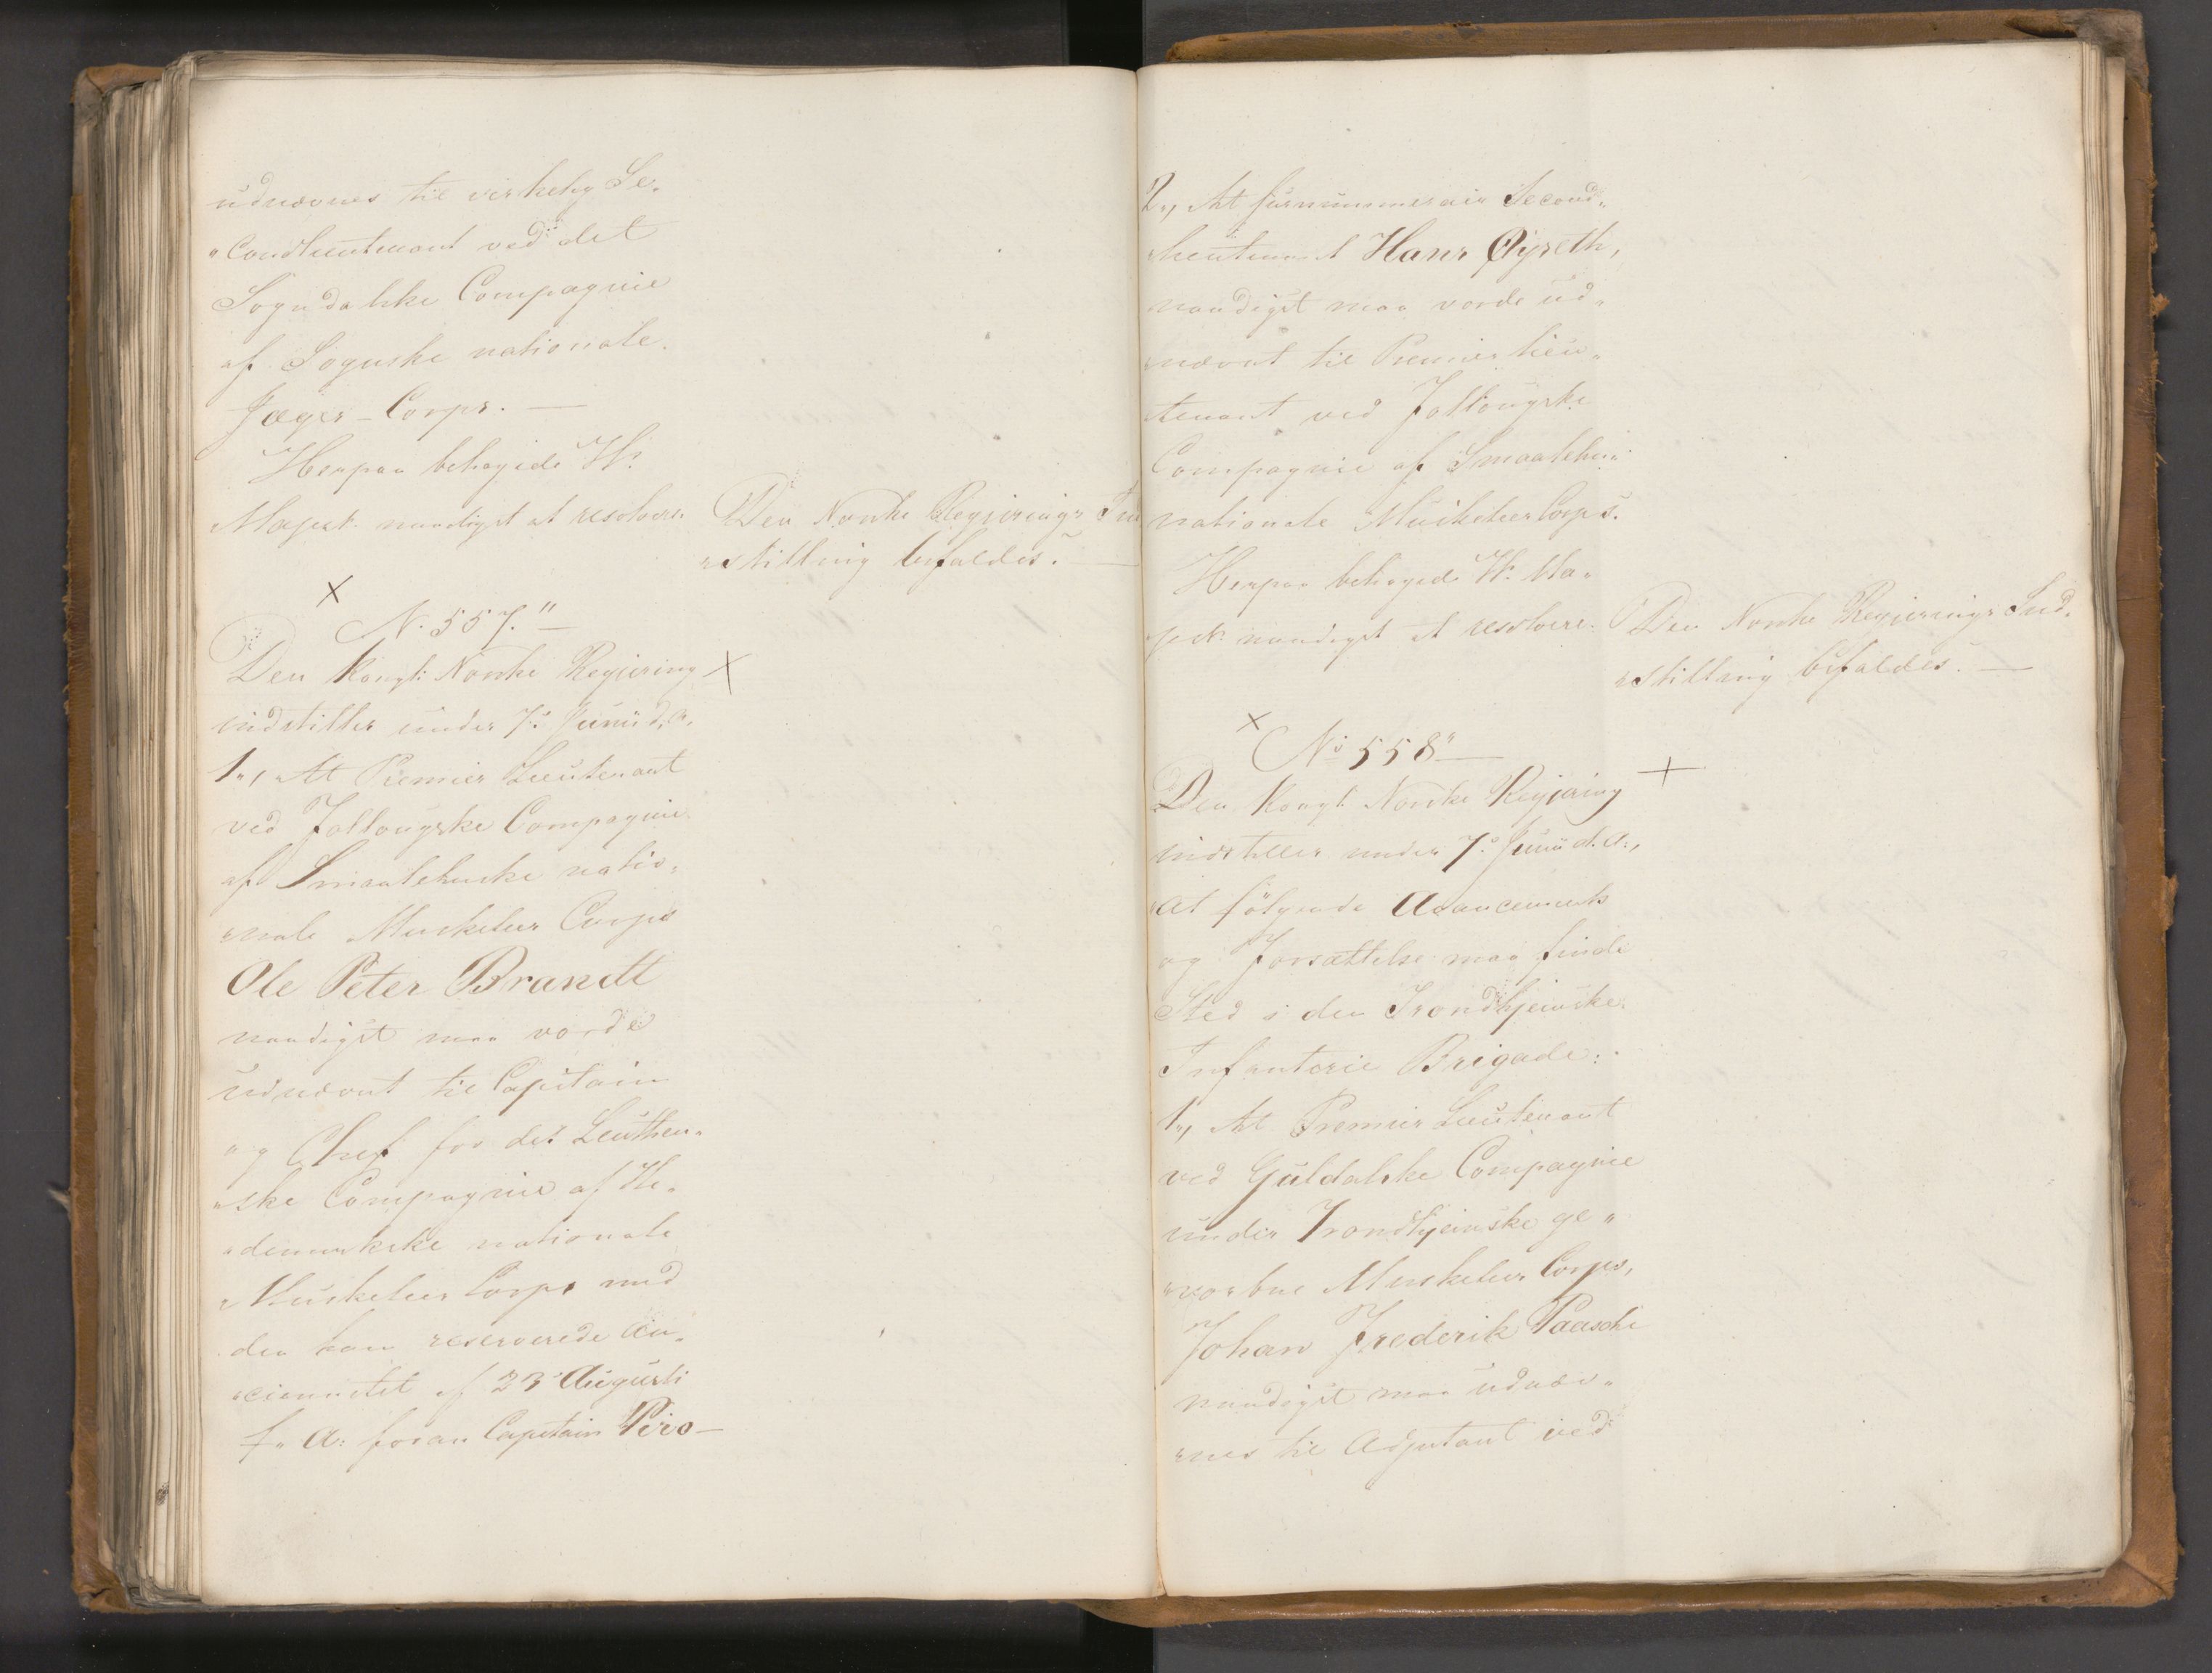 udnævnes til virkelig Se„
„condlieutenant ved det
Sogndalske Compagnie
af Sognske nationale
Jæger-Corps. —
Herpaa behagede H.
Majest. naadigst at resolvere:
Den Norske Regjerings Ind
„stilling bifaldes. —
N. 557."
Den Kongl: Norske Regjering
indstiller under 7. Junii d. a.
1„, At Premier Lieutenant
ved Follougske Compagnie
af Smaalehnske natio„
„nale Musketeer Corps
Ole Peter Brandt
naadigst maa vorde
udnævnt til Capitain
og Chef for det Leuthen„
„ske Compagnie af He„
„demarkske nationale
Musketeer Corps med
den ham reserverede An„
„ciennitet af 23 Augusti
f„ A: foran Capitain Piro—
2„, At surnummerair Second„
lieutenant Hans Øyseth,
naadigst maa vorde ud„
nævnt til Premierlieu„
tenant ved Follougske
Compagnie af Smaalehn:
nationale Musketeer Corps.
Herpaa behagede H. Ma„
jest. naadigst at resolvere:
Den Norske Regjerings Ind„
„stilling bifaldes. —
No 558"
Den Kongl. Norske Regjering
indstiller under 7. Junii d. a.,
at følgende Avancements
og Forsættelse maa finde
Sted i den Trondhjemske
Infanterie Brigade:
1„, At Premier Lieutenant
ved Guldalske Compagnie
under Trondhjemske ge„
„vorbne Musketeer Corps,
Johan Frederik Paasche
naadigst maa udnæv„
„nes til Adjutant ved